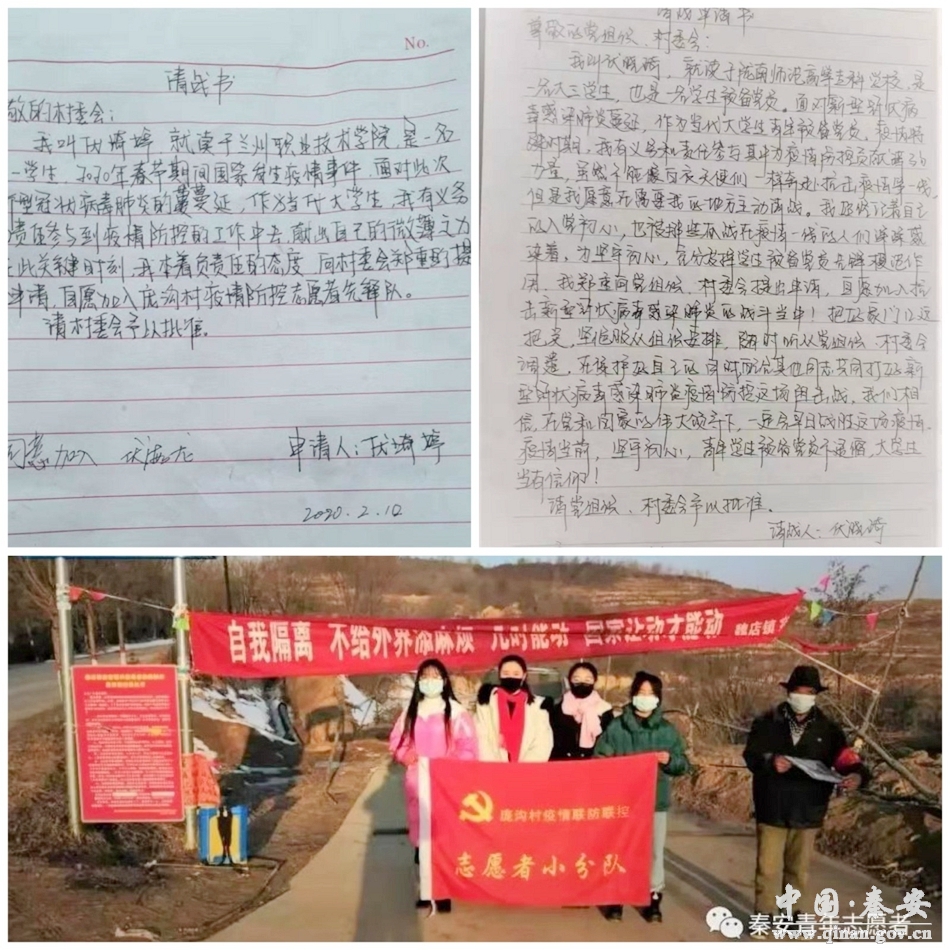 No.
请战书
敬的村委会：
我叫伏绮婷，就读于兰州职业技术学院，是一名
一学生，2020年春节期间国家发生疫情事件，面对此次
型冠状病毒肺炎的蔓延，作为当代大学生，我有义务
责任参与到疫情防控的工作中去，献出自己的微薄之力
此关键时刻，我本着负责任的态度，向村委会郑重的提
申请，自愿加入庞沟村疫情防控志愿者先锋队。
请村委会予以批准。
同意加入 伏海龙 申请人：伏绮婷
2020.2.10
请战申请书
尊敬的党组织、村委会：
我叫伏晓琦，就读于陇南师范高等专科学校，是
一名大三学生，也是一名学生预备党员。面对新型冠状病
毒感染肺炎蔓延，作为当代大学生青年预备党员，疫情特
殊时期，我有义务和责任参与其中为疫情防控贡献
力量，虽然不能像白衣天使们一样奔赴抗击疫情第一线，
但是我愿意在需要我的地方主动请战。我还惦记着自己
的入党初心，也被那些奋战在疫情一线的人们深深感
染着，为坚守初心，充分发挥学生预备党员先锋模范作
用，我郑重向党组织、村委会提出申请，自愿加入抗
击新型冠状病毒感染肺炎的战斗当中！把好家门口这
把关，坚定服从组织安排，随时听从党组织、村委会
调遣，在保护好自己的同时配合其他同志共同打好新
型冠状病毒感染肺炎疫情防控这场阻击战。我们相
信，在党和国家的伟大领导下，一定会早日战胜这场疫情。
疫情当前，坚守初心，青年学生预备党员不退缩，大学生
当有信仰！
请党组织、村委会予以批准。
请战人：伏晓琦
自我隔离 不给外界添麻烦 几时能动 国家让动才能动 魏店镇
庞沟村疫情联防联控
志愿者小分队
中国·秦安
秦安青年志愿者
www.qinan.gov.cn